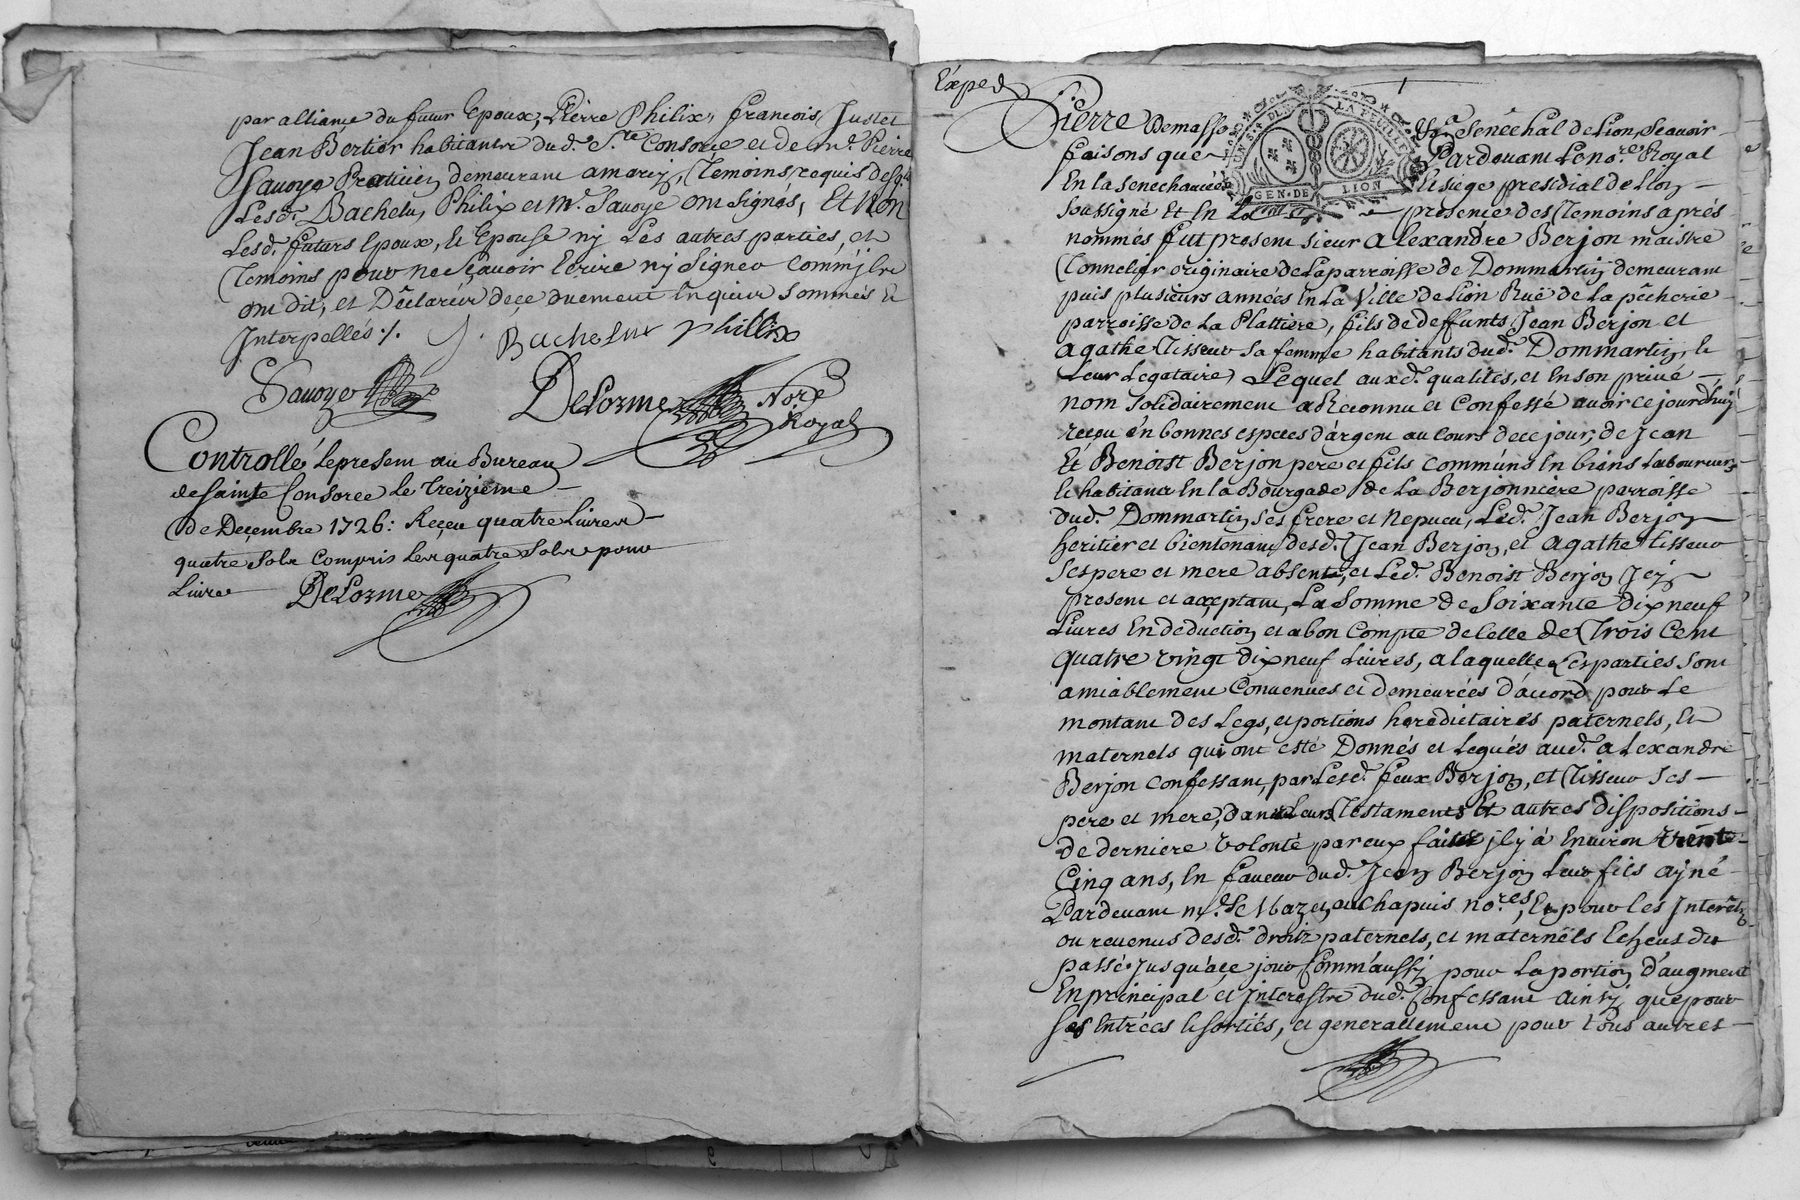 par alliance du futur Epoux, Pierre Philix, francois, Juste et
Jean Bertior habitants dud. S.te Consorce et de m.e Pierre
Sauoye Praticien demeurant a Temoins requis
Lesd. Bachelu, Philix et M.e Sauoye ont signés, Et Non
Lesd. futurs Epoux, Et Epouse nj Les autres parties, et
Temoins pour ne sçauoir Ecrire nj Signer Comm'jls
ont dit, et Déclaré de ce duement Enquis sommés Et
Interpellés ./.
Bachelu Phillix
Sauoye
DeLorme No.re
Royal
Controllé le present au Bureau
de Sainte Consorce Le Treizieme
De Decembre 1726: Reçeu quatre Livres
quatre Sols Compris Les quatre Sols pour
Livre DeLorme
Exped
Pierre Demasso Senechal de Lion, Scauoir
faisons que Pardeuant Le no.re Royal
En la Senechaucée Et siege presidial de Lion
soussigné Et En La presence des Temoins aprés
nommés fut present sieur Alexandre Berjon maistre
Tonnelier originaire de La parroisse de Dommartin demeurant
puis plusieurs années En La Ville de Lion Ruë de la pêcherie
parroisse de La Plattiere, fils de deffunts Jean Berjon et
agathe Tisseur sa femme habitants dud. Dommartin, Et
Leur Legataire, Lequel auxd. qualités, et En son priué
nom solidairement a Reconnu et Confessé auoir ce jourd'huy
reçeu en bonnes especes d'argent au Cours de ce jour, de Jean
Et Benoist Berjon pere et fils communs En biens Laboureurs
Et habitants En la Bourgade de La Berjonniere parroisse
dud. Dommartin ses frere et Nepueu, Led. Jean Berjon
heritier et bientenant desd. Jean Berjon, et agathe Tisseur
Ses pere et mere absent, et Led. Benoist Berjon Jcy
present et acceptant, La somme de Soixante dix neuf
Liures En deduction et a bon Compte de Celle de Trois Cent
quatre vingt dix neuf Liures, a laquelle Les parties sont
amiablement Conuenues et demeurées d'accord pour Le
montant des Legs, et portions hereditaires paternels, Et
maternels qui ont esté Donnés et Legués aud. alexandre
Berjon Confessant, par Lesd. feux Berjon, et Tisseur ses
pere et mere, dans Leurs Testaments Et autres dispositions
de derniere Volonté par eux faites jl y à Enuiron trente
Cinq ans, En faueur dud. Jean Berjon Leur fils ayné
Pardeuant m.e et Chapuis no.res, Et pour les Interêts
ou reuenus desd. droits paternels, et maternels Echeus du
passé Jusqu'a ce jour Comm'aussy pour La portion d'augment
En principal et Interestre dud. Confessant ainsy que pour
ses Entrées Et sorties, et generallement pour tous autres
LA FEUILLE
GEN. DE LION